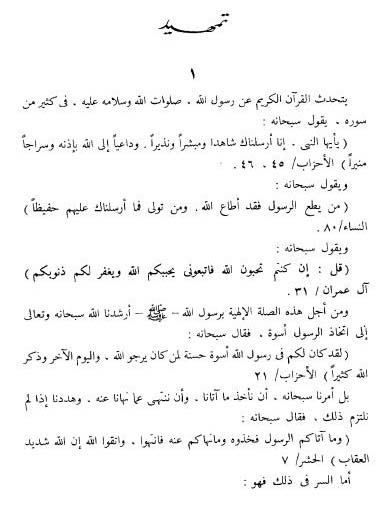 تمهيد
١
يتحدث القرآن الكريم عن رسول الله . صلوات الله وسلامه عليه . فى كثير من
سوره . يقول سبحانه :
( يأيها النبى . إنا أرسلناك شاهدا ومبشراً ونذيراً . وداعياً إلى الله بإذنه وسراجاً
منيراً ) الأحزاب/ ٤٥ . ٤٦ .
ويقول سبحانه :
( من يطع الرسول فقد أطاع الله . ومن تولى فما أرسلناك عليهم حفيظاً )
النساء/٨٠ .
ويقول سبحانه :
( قل : إن كنتم تحبون الله فاتبعونى يحببكم الله ويغفر لكم ذنوبكم )
آل عمران / ٣١ .
ومن أجل هذه الصلة الإلهية برسول الله – ﷺ – أرشدنا الله سبحانه وتعالى
إلى اتخاذ الرسول أسوة . فقال سبحانه :
( لقد كان لكم فى رسول الله أسوة حسنة لمن كان يرجو الله . واليوم الآخر وذكر
الله كثيراً ) الأحزاب/ ٢١
بل أمرنا سبحانه . أن نأخذ ما آتانا . وأن ننتهى عما نهانا عنه . وهددنا إذا لم
نلتزم ذلك . فقال سبحانه :
( وما آتاكم الرسول فخذوه ومانهاكم عنه فانتهوا . واتقوا الله إن الله شديد
العقاب ) الحشر/ ٧
أما السر فى ذلك فهو :